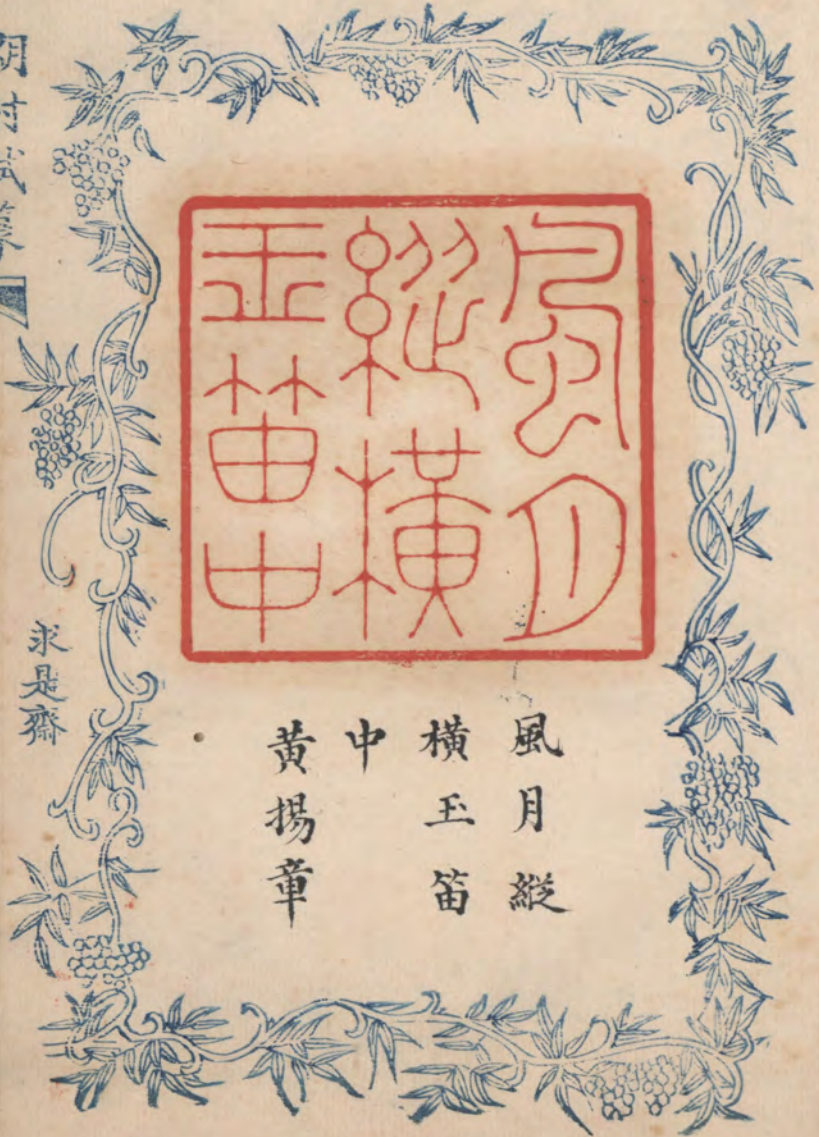 風月
縱橫
玉笛中
風月縱
橫玉笛
中
黃揚章
求是齋